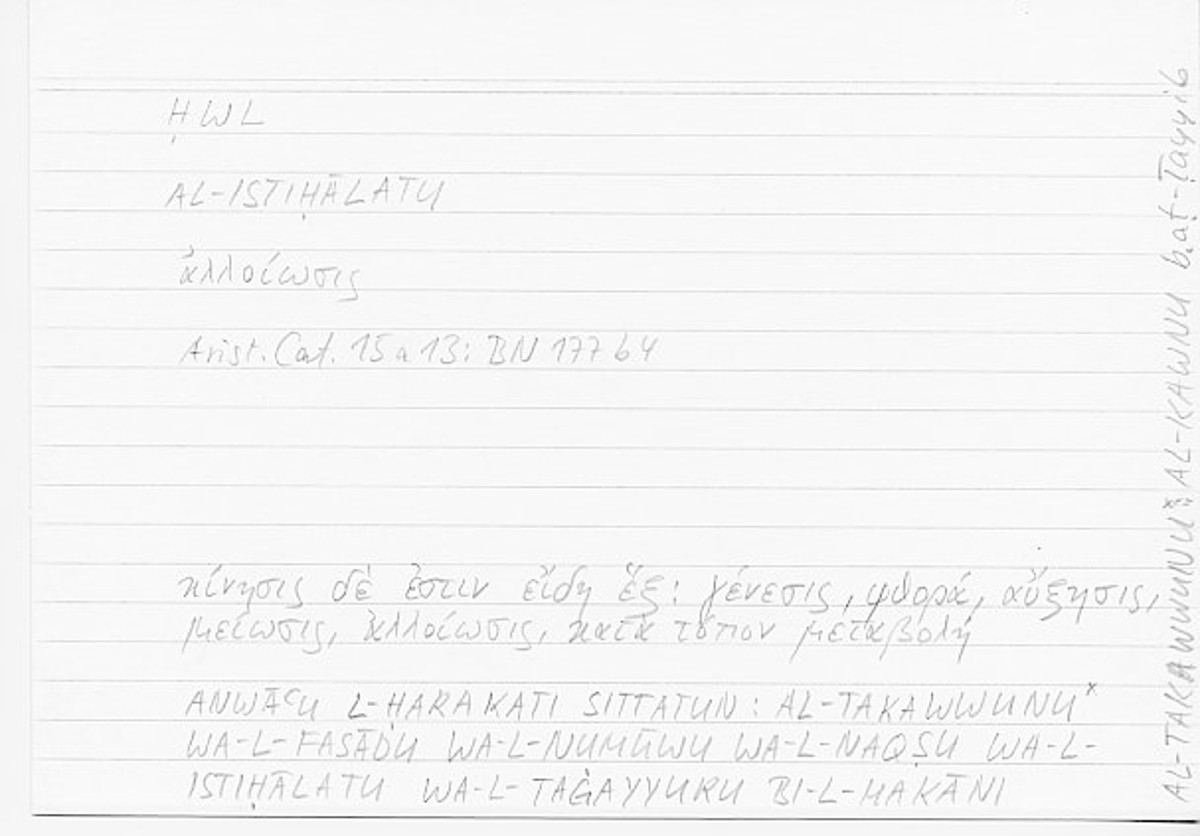 ḤWL
AL-ISTIḤĀLATU
ἀλλοίωσις
Arist. Cat. 15 a 13: BN 177 b4
κίνησις δέ ἐστιν εἴδη ἕξ: γένεσις, φθορά, αὔξησις,
μείωσις, ἀλλοίωσις, κατὰ τόπον μεταβολή
ANWĀʿU L-ḤARAKATI SITTATUN: AL-TAKAWWUNU*
WA-L-FASĀDU WA-L-NUMŪWU WA-L-NAQṢU WA-L-
ISTIḤĀLATU WA-L-TAĠAYYURU BI-L-MAKĀNI
AL-TAKAWWUNU*: AL-KAWNU b. aṭ-Ṭayyib